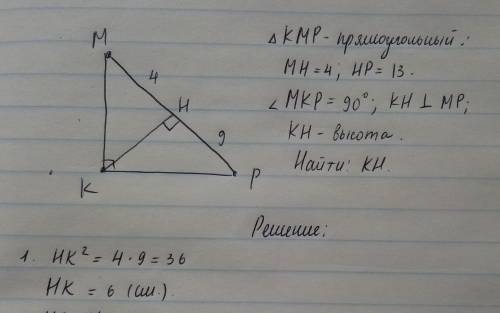 M
4
H
9
K
P
△ KMP - прямоугольный:
MH = 4; HP = 13.
∠ MKP = 90°; KH ⊥ MP;
KH - высота.
Найти: KH.
Решение:
1. HK² = 4 · 9 = 36
HK = 6 (см).